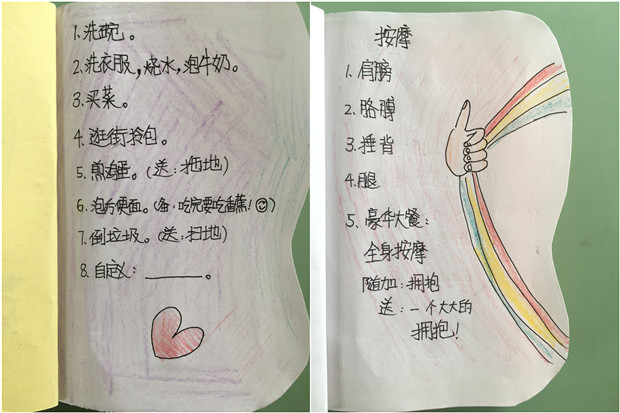 1.洗碗。
2.洗衣服,烧水,泡牛奶。
3.买菜。
4.逛街拎包。
5.煎鸡蛋。(送:拖地)
6.泡方便面。(备:吃完要吃香蕉!)
7.倒垃圾。(送:扫地)
8.自定义:______。
按摩
1.肩膀
2.胳膊
3.捶背
4.腿
5.豪华大餐:
全身按摩
附加:拥抱
送:一个大大的
拥抱!